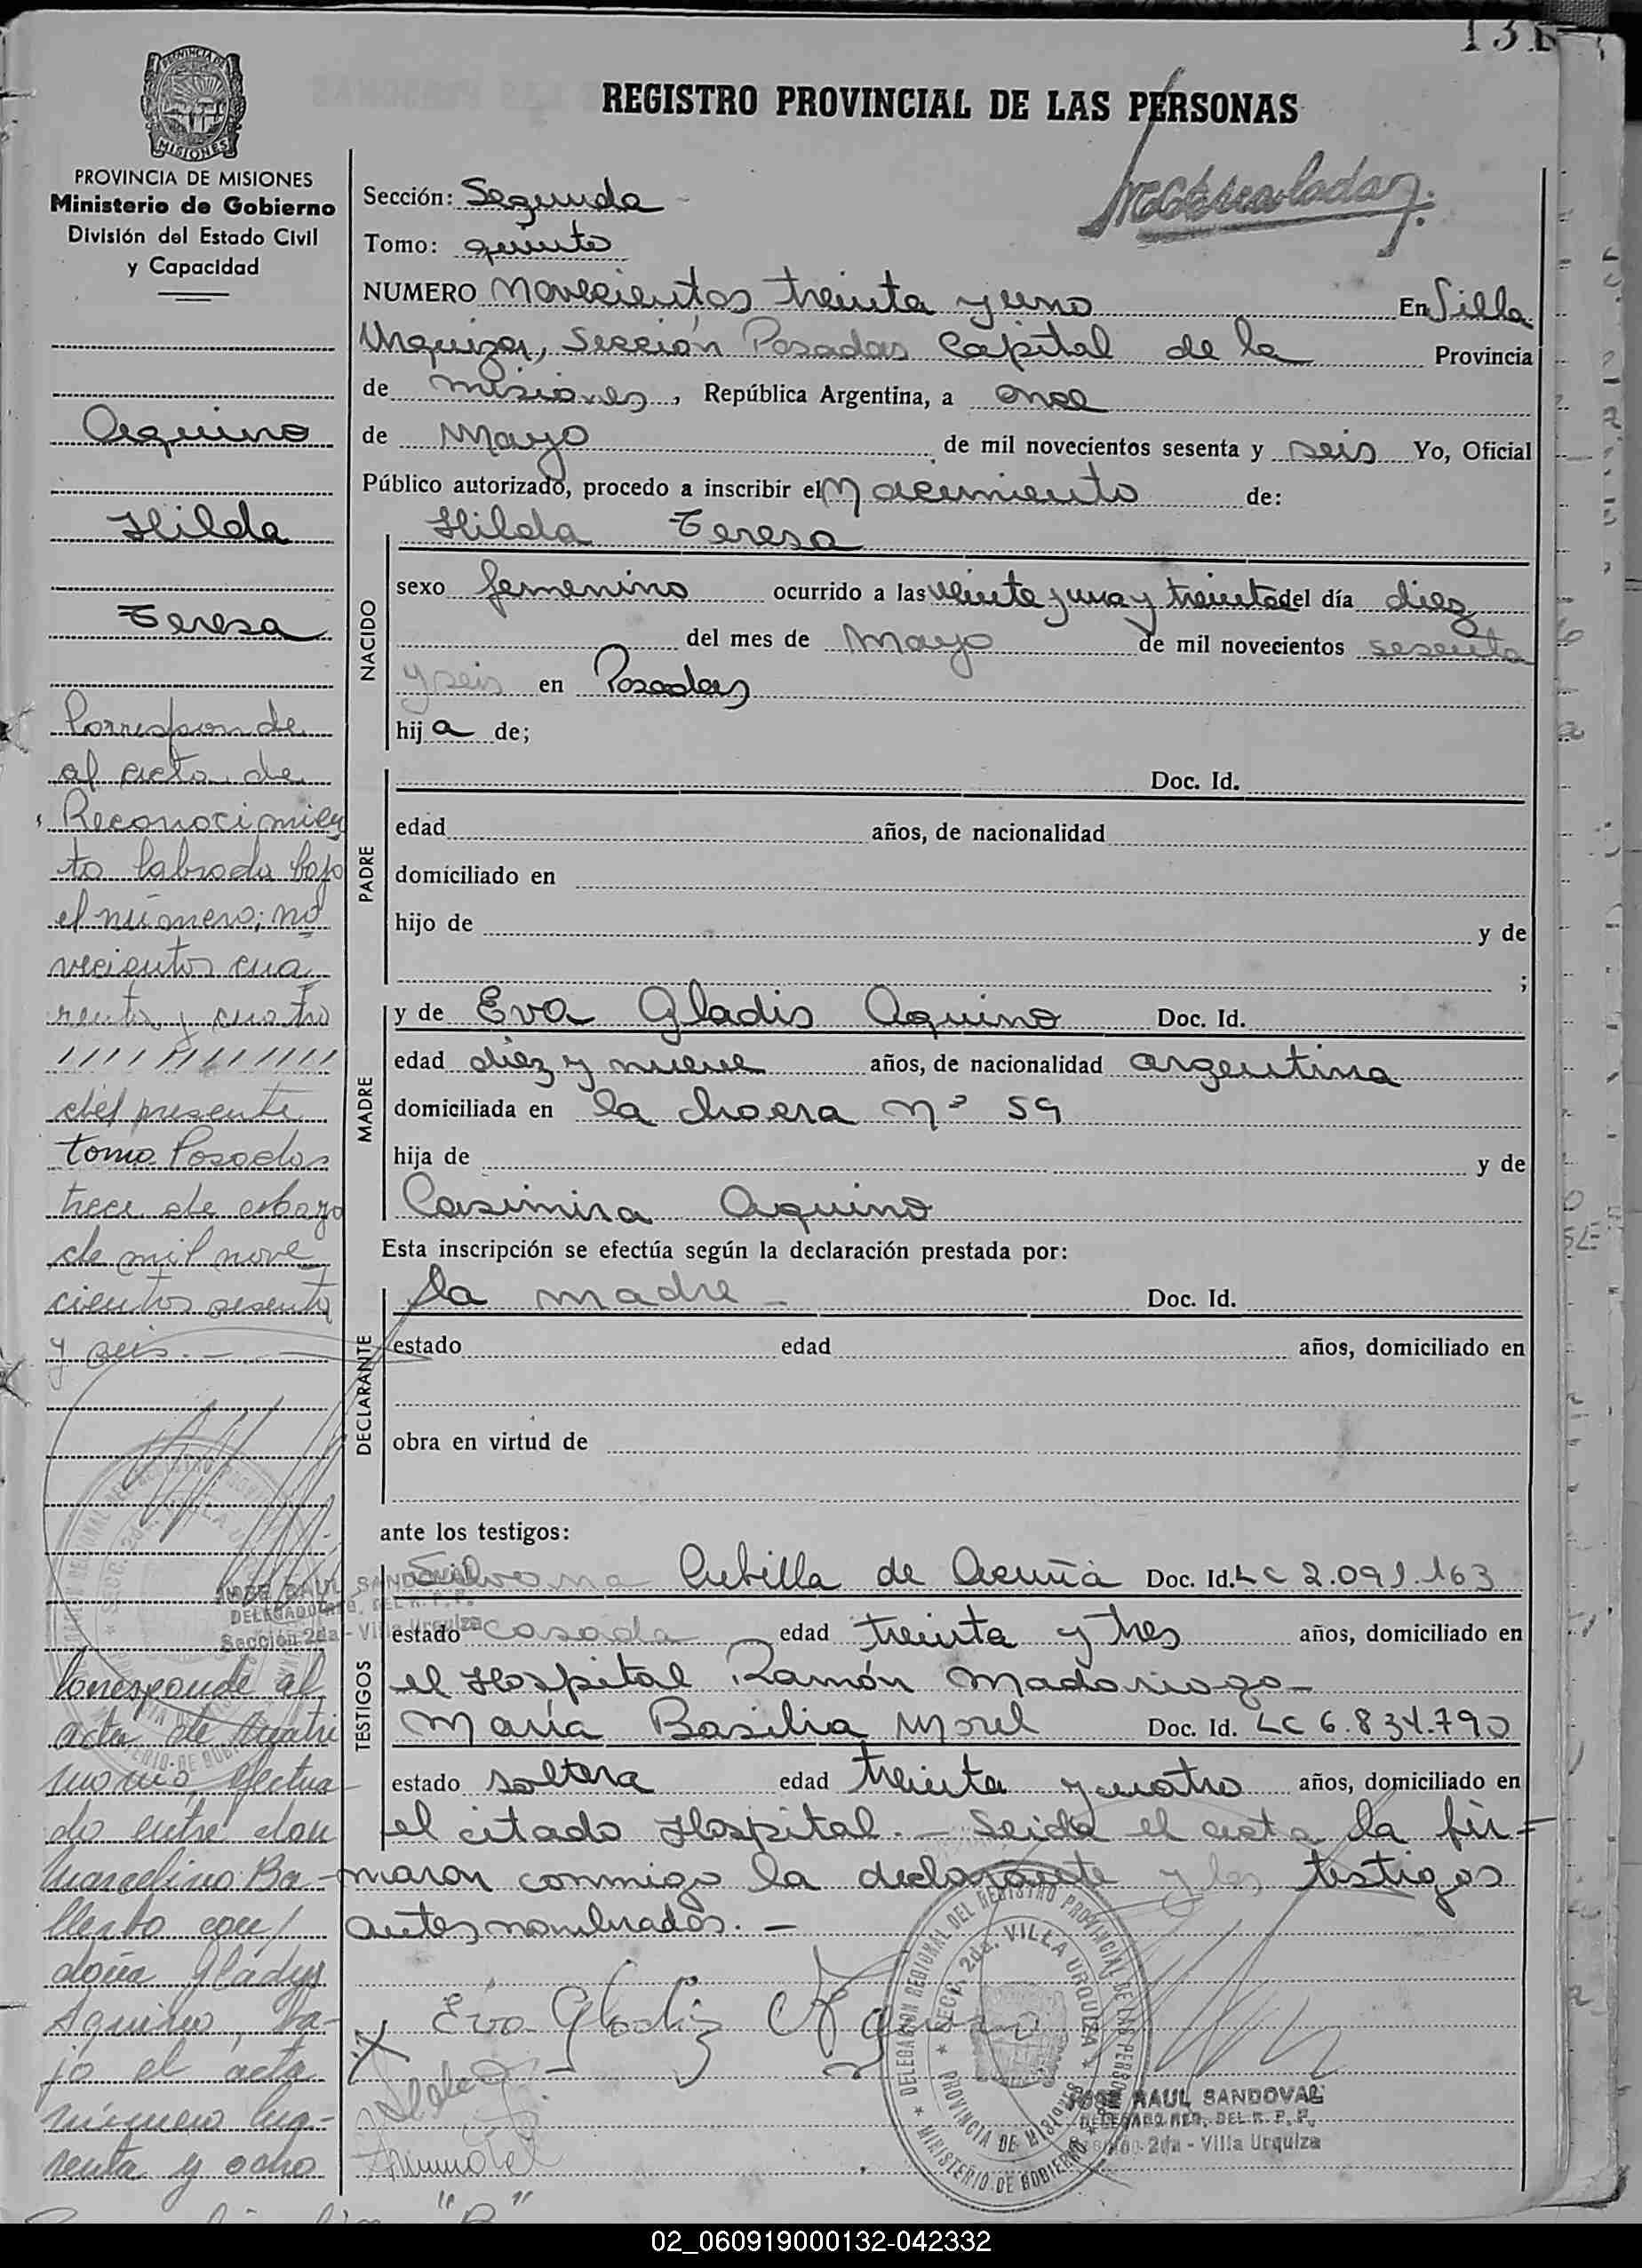 131
REGISTRO PROVINCIAL DE LAS PERSONAS
PROVINCIA DE MISIONES
Ministerio de Gobierno
División del Estado Civil
y Capacidad
Sección: Segunda
Tomo: quinto
NUMERO Novecientos treinta y uno En Villa
Urquiza, Sección Posadas Capital de la Provincia
de misiones, República Argentina, a once
de Mayo de mil novecientos sesenta y seis Yo, Oficial
Público autorizado, procedo a inscribir el Nacimiento de:
NACIDO
Hilda Teresa
sexo femenino ocurrido a las veinte y una y treinta del día diez
del mes de Mayo de mil novecientos sesenta
y seis en Posadas
hija de;
PADRE
Doc. Id.
edad años, de nacionalidad
domiciliado en
hijo de y de
;
MADRE
y de Eva Gladis Aquino Doc. Id.
edad diez y nueve años, de nacionalidad argentina
domiciliada en la chacra Nº 59
hija de y de
Casimira Aquino
Esta inscripción se efectúa según la declaración prestada por:
DECLARANTE
la madre - Doc. Id.
estado edad años, domiciliado en
obra en virtud de
ante los testigos:
TESTIGOS
Cubilla de Acuña Doc. Id. LC 2.091.163
estado casada edad treinta y tres años, domiciliado en
el Hospital Ramón Madariaga -
María Basilia Morel Doc. Id. LC 6.834.790
estado soltera edad treinta y cuatro años, domiciliado en
el citado Hospital. - Leida el acta la fir=
maron conmigo la declarante y los testigos
antes nombrados. -
Eva Gladis Aquino
DELEGACION REGIONAL DEL REGISTRO PROVINCIAL DE LAS PERSONAS
SECC. 2da. VILLA URQUIZA
PROVINCIA DE MISIONES
MINISTERIO DE GOBIERNO
JOSE RAUL SANDOVAL
DELEGADO REG. DEL R. P. P.
Sección 2da - Villa Urquiza
Aquino
Hilda
Teresa
Corresponde
al acta de
Reconocimien
to labrada bajo
el número; no
vecientos cua
renta y cuatro
del presente
tomo Posadas
trece de
de mil nove
cientos sesenta
y seis. -
JOSE RAUL SANDOVAL
DELEGADO REG. DEL R. P. P.
Sección 2da - Villa Urquiza
Corresponde al
acta de matri
monio, efectua
do entre don
Marcelino Ba-
llejo con
doña Gladys
Aquino, ba-
jo el acta
número
renta y ocho
"B"
02_060919000132-042332